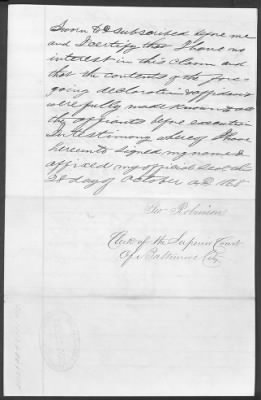 Sworn to & subscribed before me
and I certify that I have no
interest in this claim and
that the contents of the fore-
going declaration & affidavit
were fully made known to
the affiants before execution
In testimony whereof I have
hereunto signed my name &
affixed my official seal this
28 day of October A.D. 186
Geo Robinson
Clerk of the Superior Court
Of Baltimore City